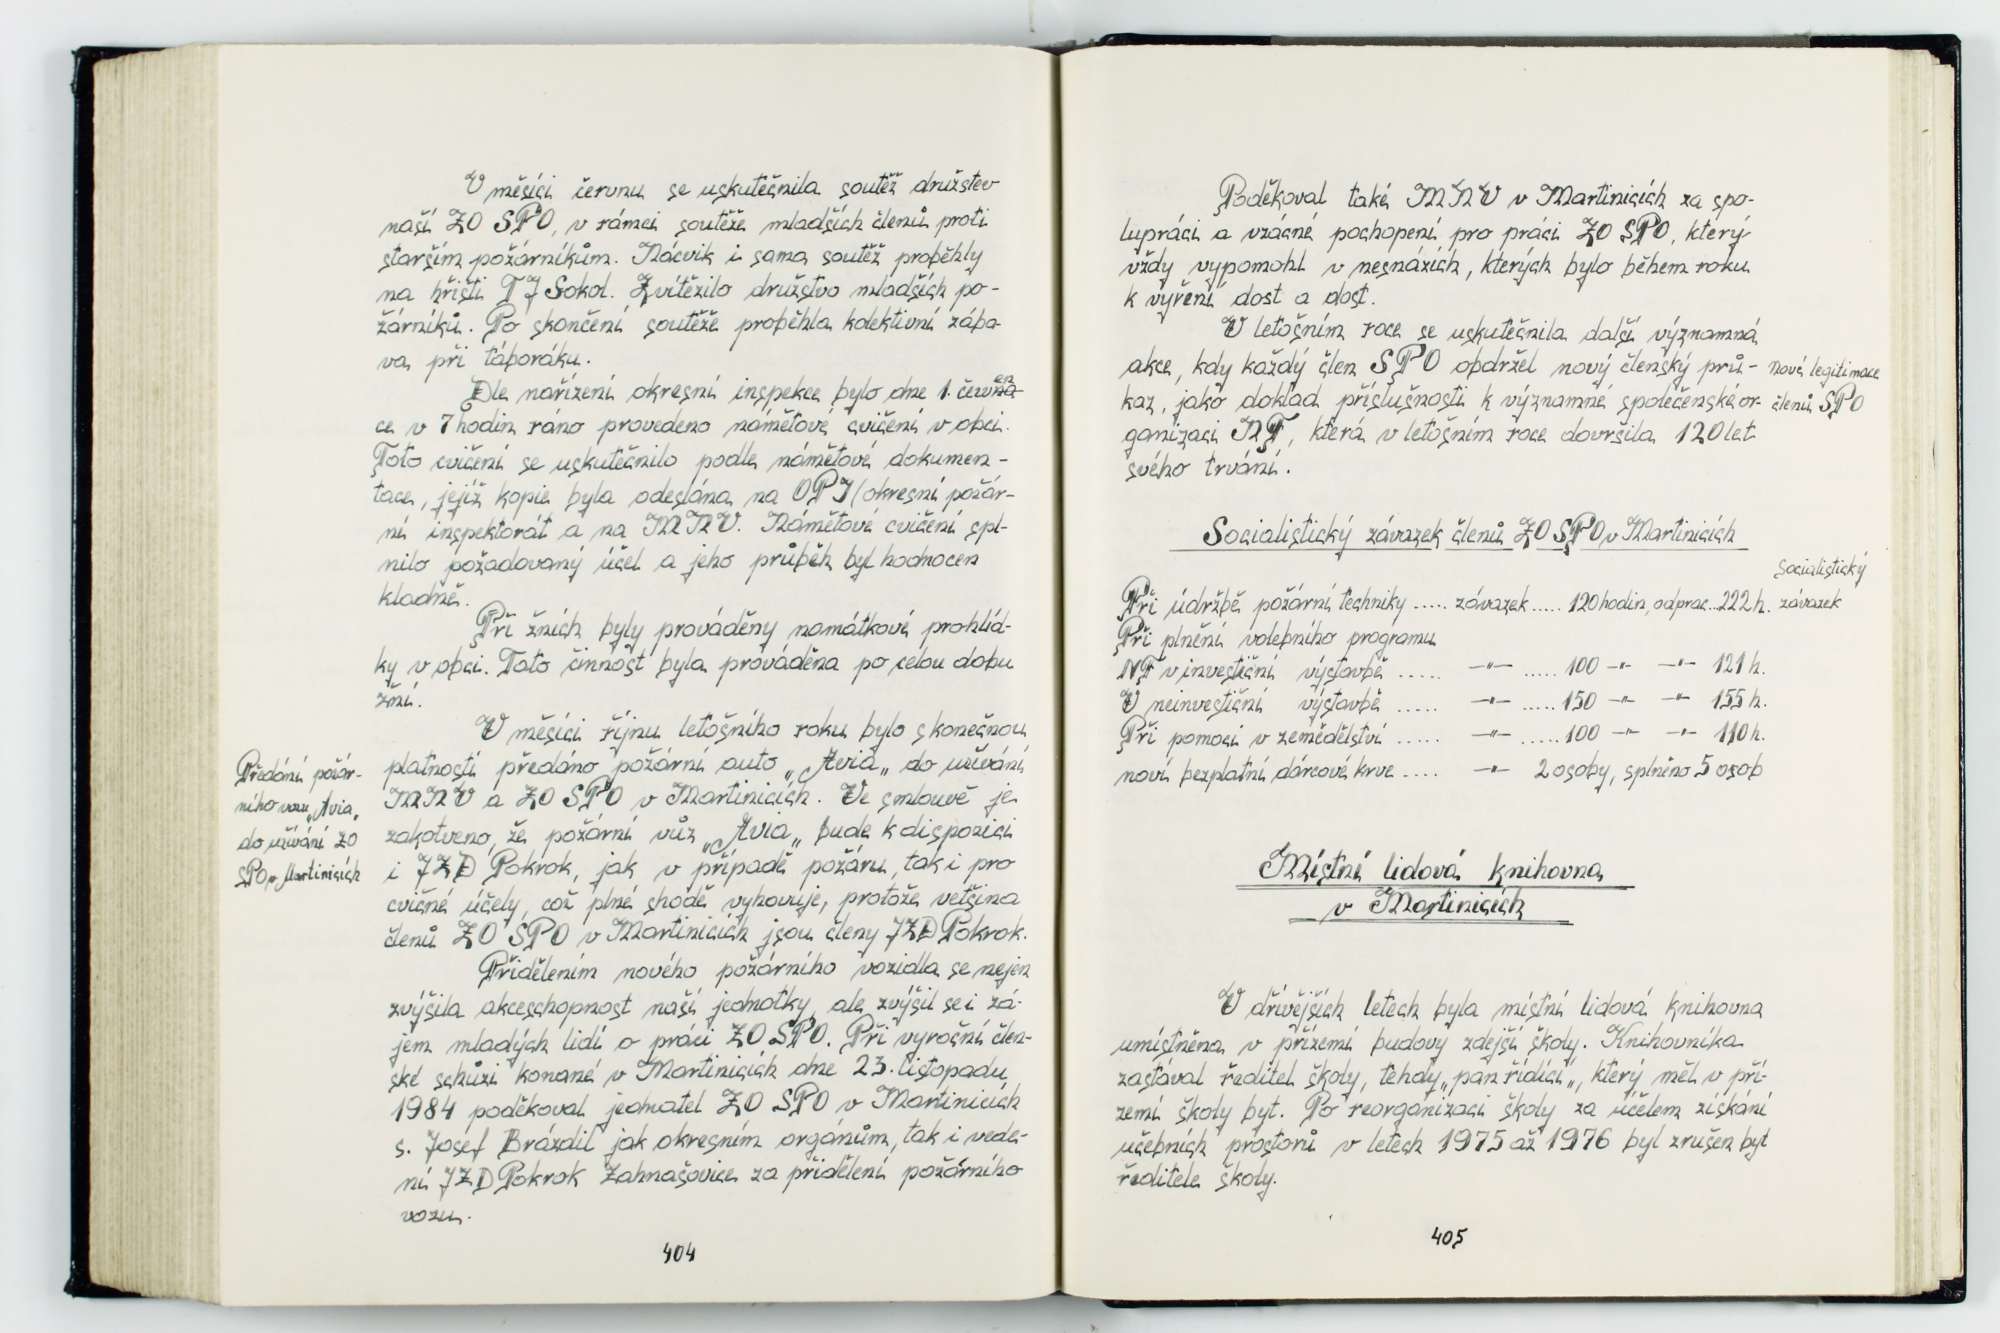 V měsíci červnu se uskutečnila soutěž družstev
naší ZO SPO, v rámci soutěže mladších členů proti
starším požárníkům. Nácvik i sama soutěž proběhly
na hřišti TJ Sokol. Zvítězilo družstvo mladších po-
žárníků. Po skončení soutěže proběhla kolektivní zába-
va při táboráku.
Dle nařízení okresní inspekce bylo dne 1. červen-
ce v 7 hodin ráno provedeno námětové cvičení v obci.
Toto cvičení se uskutečnilo podle námětové dokumen-
tace, jejíž kopie byla odeslána na OPI (okresní požár-
ní inspektorát a na MNV. Námětové cvičení spl-
nilo požadovaný účel a jeho průběh byl hodnocen
kladně.
Při žních byly prováděny namátkové prohlíd-
ky v obci. Tato činnost byla prováděna po celou dobu
žní.
V měsíci říjnu letošního roku bylo s konečnou
platností předáno požární auto „Avia„ do užívání
MNV a ZO SPO v Martinicích. Ve smlouvě je
zakotveno, že požární vůz „Avia„ bude k dispozici
i JZD Pokrok, jak v případě požáru, tak i pro
cvičné účely, což plně shodě vyhovuje, protože většina
členů ZO SPO v Martinicích jsou členy JZD Pokrok.
Přidělením nového požárního vozidla se nejen
zvýšila akceschopnost naší jednotky, ale zvýšil se i zá-
jem mladých lidí o práci ZO SPO. Při výroční člen-
ské schůzi konané v Martinicích dne 23. listopadu
1984 poděkoval jednatel ZO SPO v Martinicích
s. Josef Brázdil jak okresním orgánům, tak i vede-
ní JZD Pokrok Zahnašovice za přidělení požárního
vozu.
Předání požár-
ního vozu „Avia„
do užívání ZO
SPO v Martinicích
404
Poděkoval také MNV v Martinicích za spo-
lupráci a vzácné pochopení pro práci ZO SPO, který
vždy vypomohl v nesnázích, kterých bylo během roku
k vyření dost a dost.
V letošním roce se uskutečnila další významná
akce, kdy každý člen SPO obdržel nový členský prů-
kaz, jako doklad příslušnosti k významné společenské or-
ganizaci NF, která v letošním roce dovršila 120 let
svého trvání.
nové legitimace
členů SPO
Socialistický závazek členů ZO SPO v Martinicích
socialistický
závazek
Při údržbě požární techniky ..... závazek ..... 120 hodin, odprac.. 222 h.
Při plnění volebního programu
NF v investiční výstavbě ..... -"- ..... 100 -"- -"- 121 h.
V neinvestiční výstavbě ..... -"- ..... 150 -"- -"- 155 h.
Při pomoci v zemědělství ..... -"- ..... 100 -"- -"- 110 h.
noví bezplatní dárcové krve .... -"- 2 osoby, splněno 5 osob
Místní lidová knihovna
v Martinicích
V dřívějších letech byla místní lidová knihovna
umístněna v přízemí budovy zdejší školy. Knihovníka
zastával ředitel školy, tehdy „pan řídící„, který měl v pří-
zemí školy byt. Po reorganizaci školy za účelem získání
učebních prostorů v letech 1975 až 1976 byl zrušen byt
ředitele školy.
405